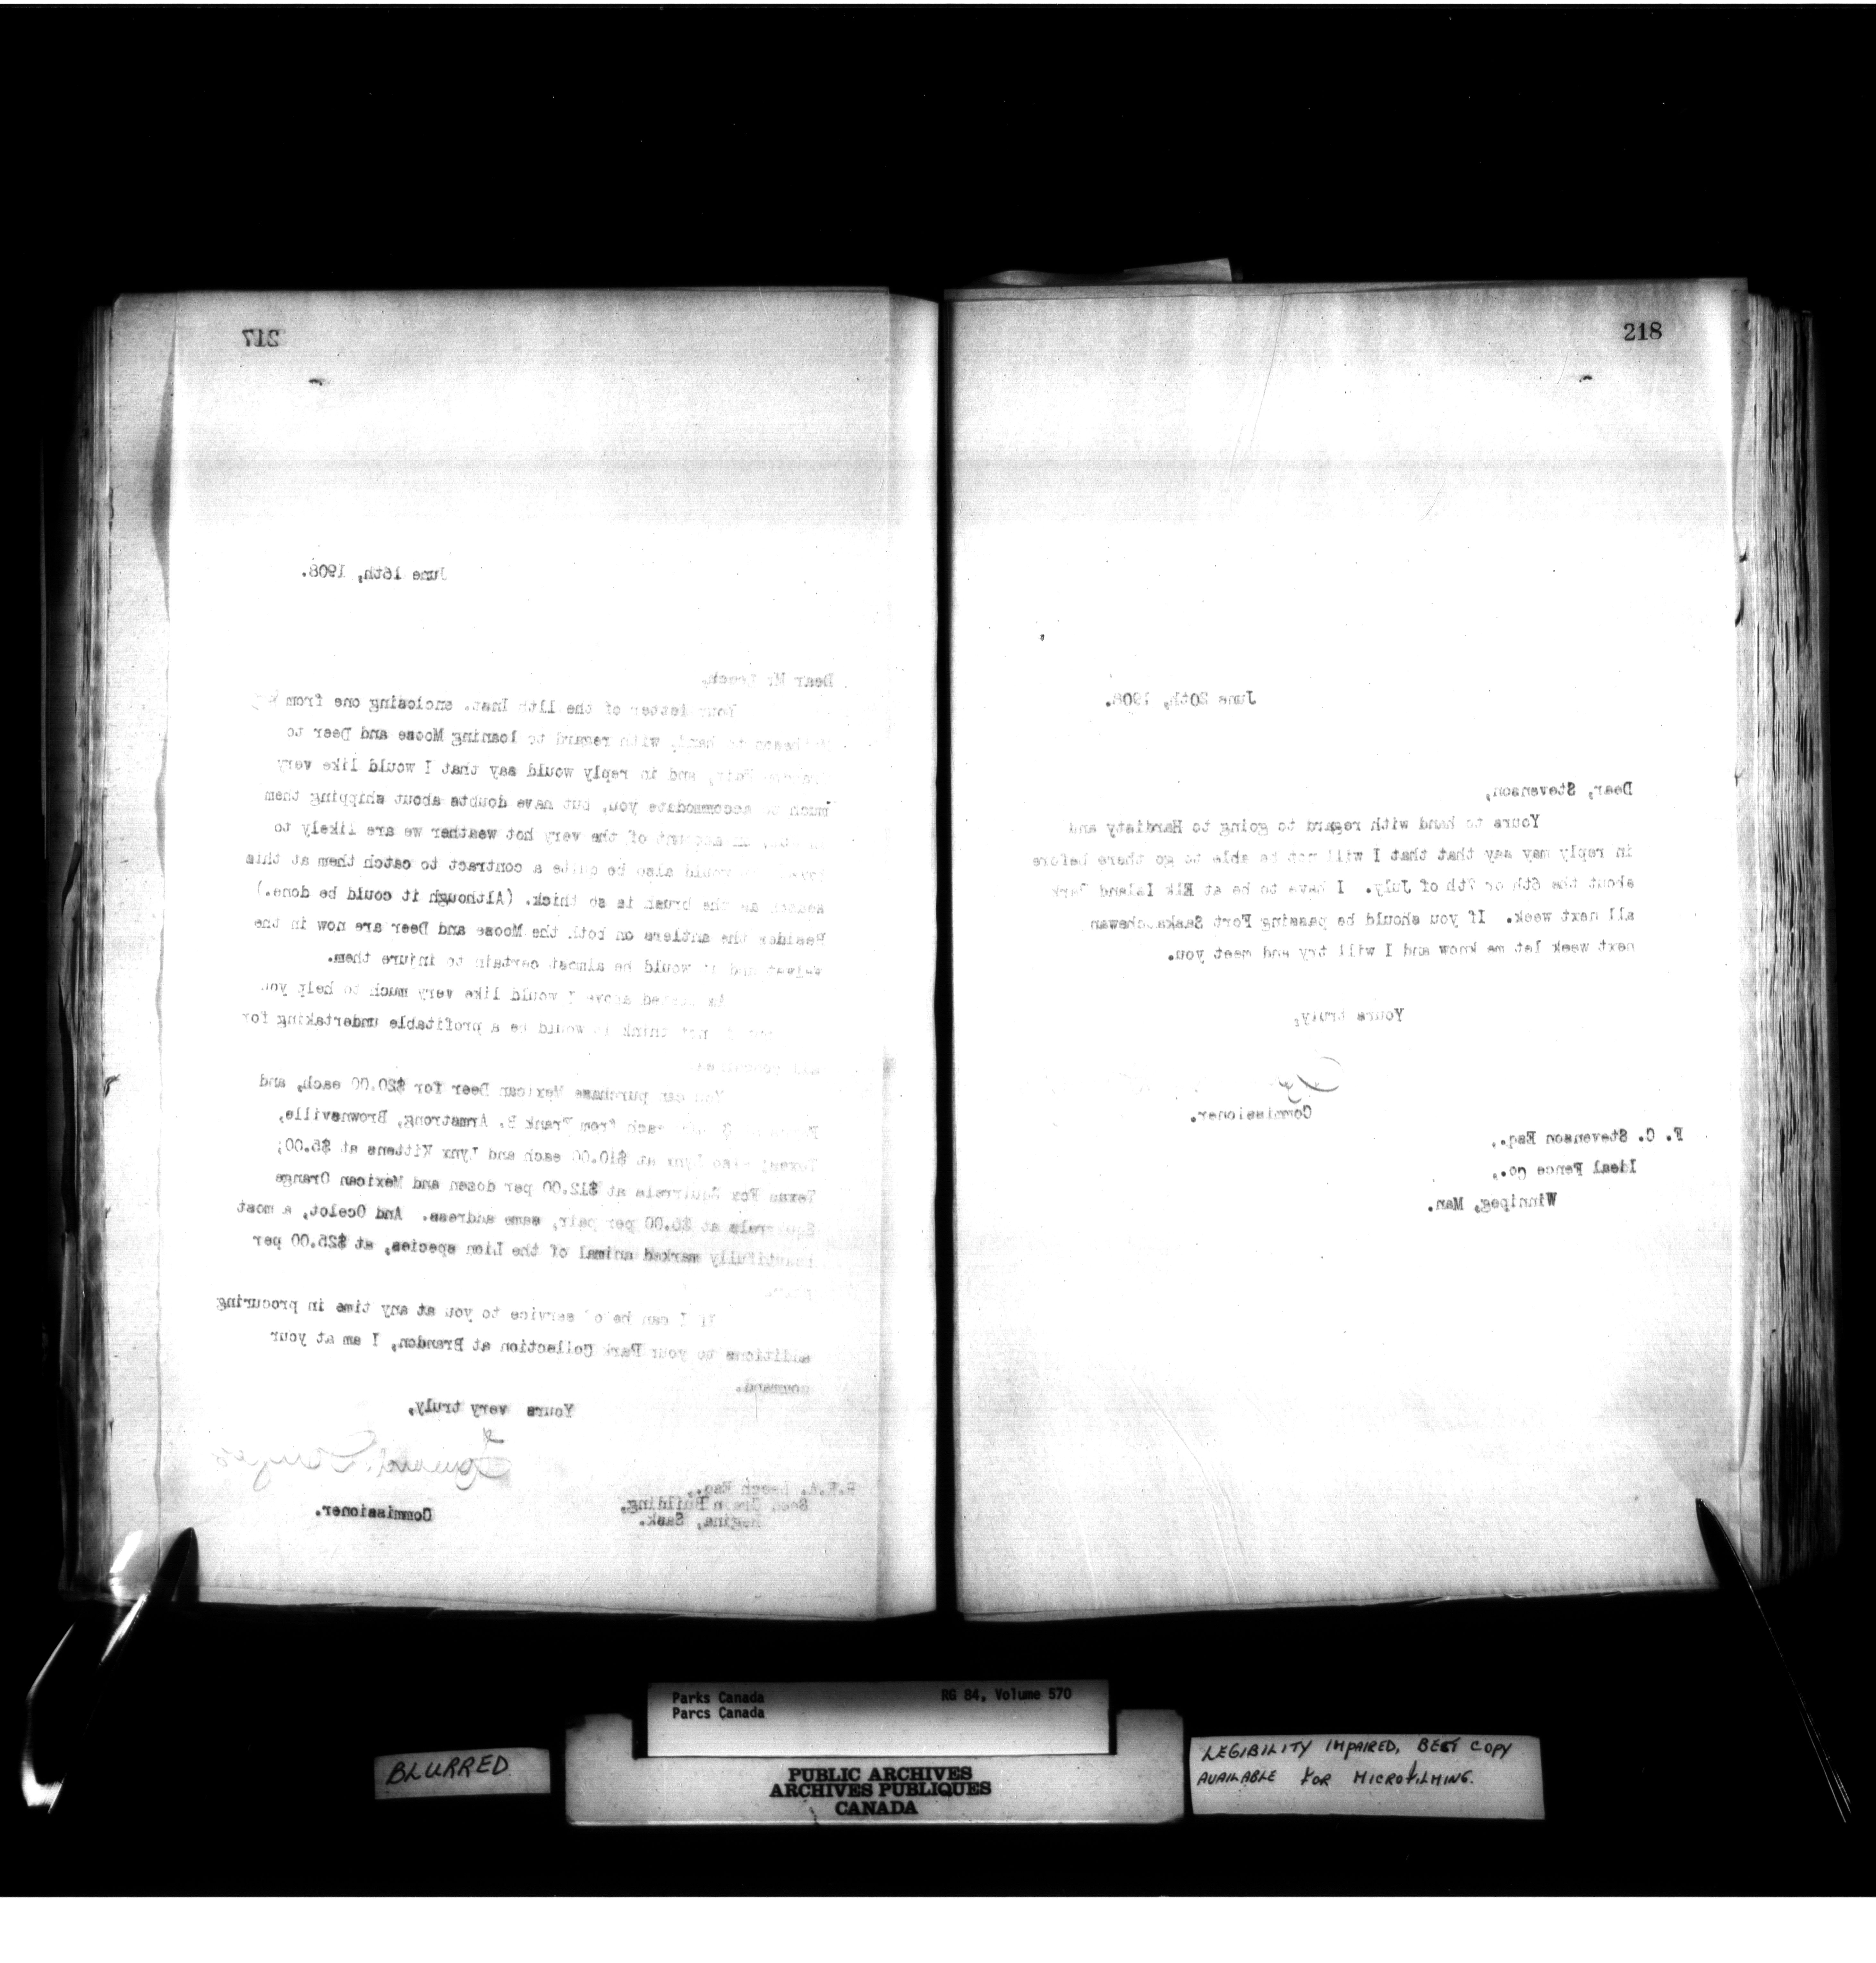 217
June 16th, 1908.
Dear Mr Leech,
Your letter of the 11th Inst. enclosing one from
to hand, with regard to loaning Moose and Deer to
Fair, and in reply would say that I would like very
much to accommodate you, but have doubts about shipping them
on account of the very hot weather we are likely to
would also be quite a contract to catch them at this
season as the brush is so thick. (Although it could be done.)
Besides the antlers on both the Moose and Deer are now in the
velvet and it would be almost certain to injure them.
As stated above I would like very much to help you
not think it would be a profitable undertaking for
all concerned
You can purchase Mexican Deer for $20.00 each, and
each from Frank B. Armstrong, Brownsville,
Texas; also Lynx at $10.00 each and Lynx Kittens at $5.00;
Texas Fox Squirrels at $12.00 per dozen and Mexican Orange
Squirrels at $5.00 per pair, same address. And Ocelot, a most
beautifully marked animal of the Lion species, at $25.00 per
pair.
If I can be of service to you at any time in procuring
additions to your Park Collection at Brandon, I am at your
command.
Yours very truly,
Howard Douglas
Commissioner.
R.K.A. Leech Esq.,
Seed Grain Building,
Regina, Sask.
218
June 20th, 1908.
Dear, Stevenson,
Yours to hand with regard to going to Hardisty and
in reply may say that that I will not be able to go there before
about the 6th or 7th of July. I have to be at Elk Island Park
all next week. If you should be passing Fort Saskatchewan
next week let me know and I will try and meet you.
Yours truly,
Commissioner.
F. C. Stevenson Esq.,
Ideal Fence Co.,
Winnipeg, Man.
Parks Canada
Parcs Canada
RG 84, Volume 570
BLURRED
PUBLIC ARCHIVES
ARCHIVES PUBLIQUES
CANADA
LEGIBILITY IMPAIRED, BEST COPY
AVAILABLE FOR MICROFILMING.